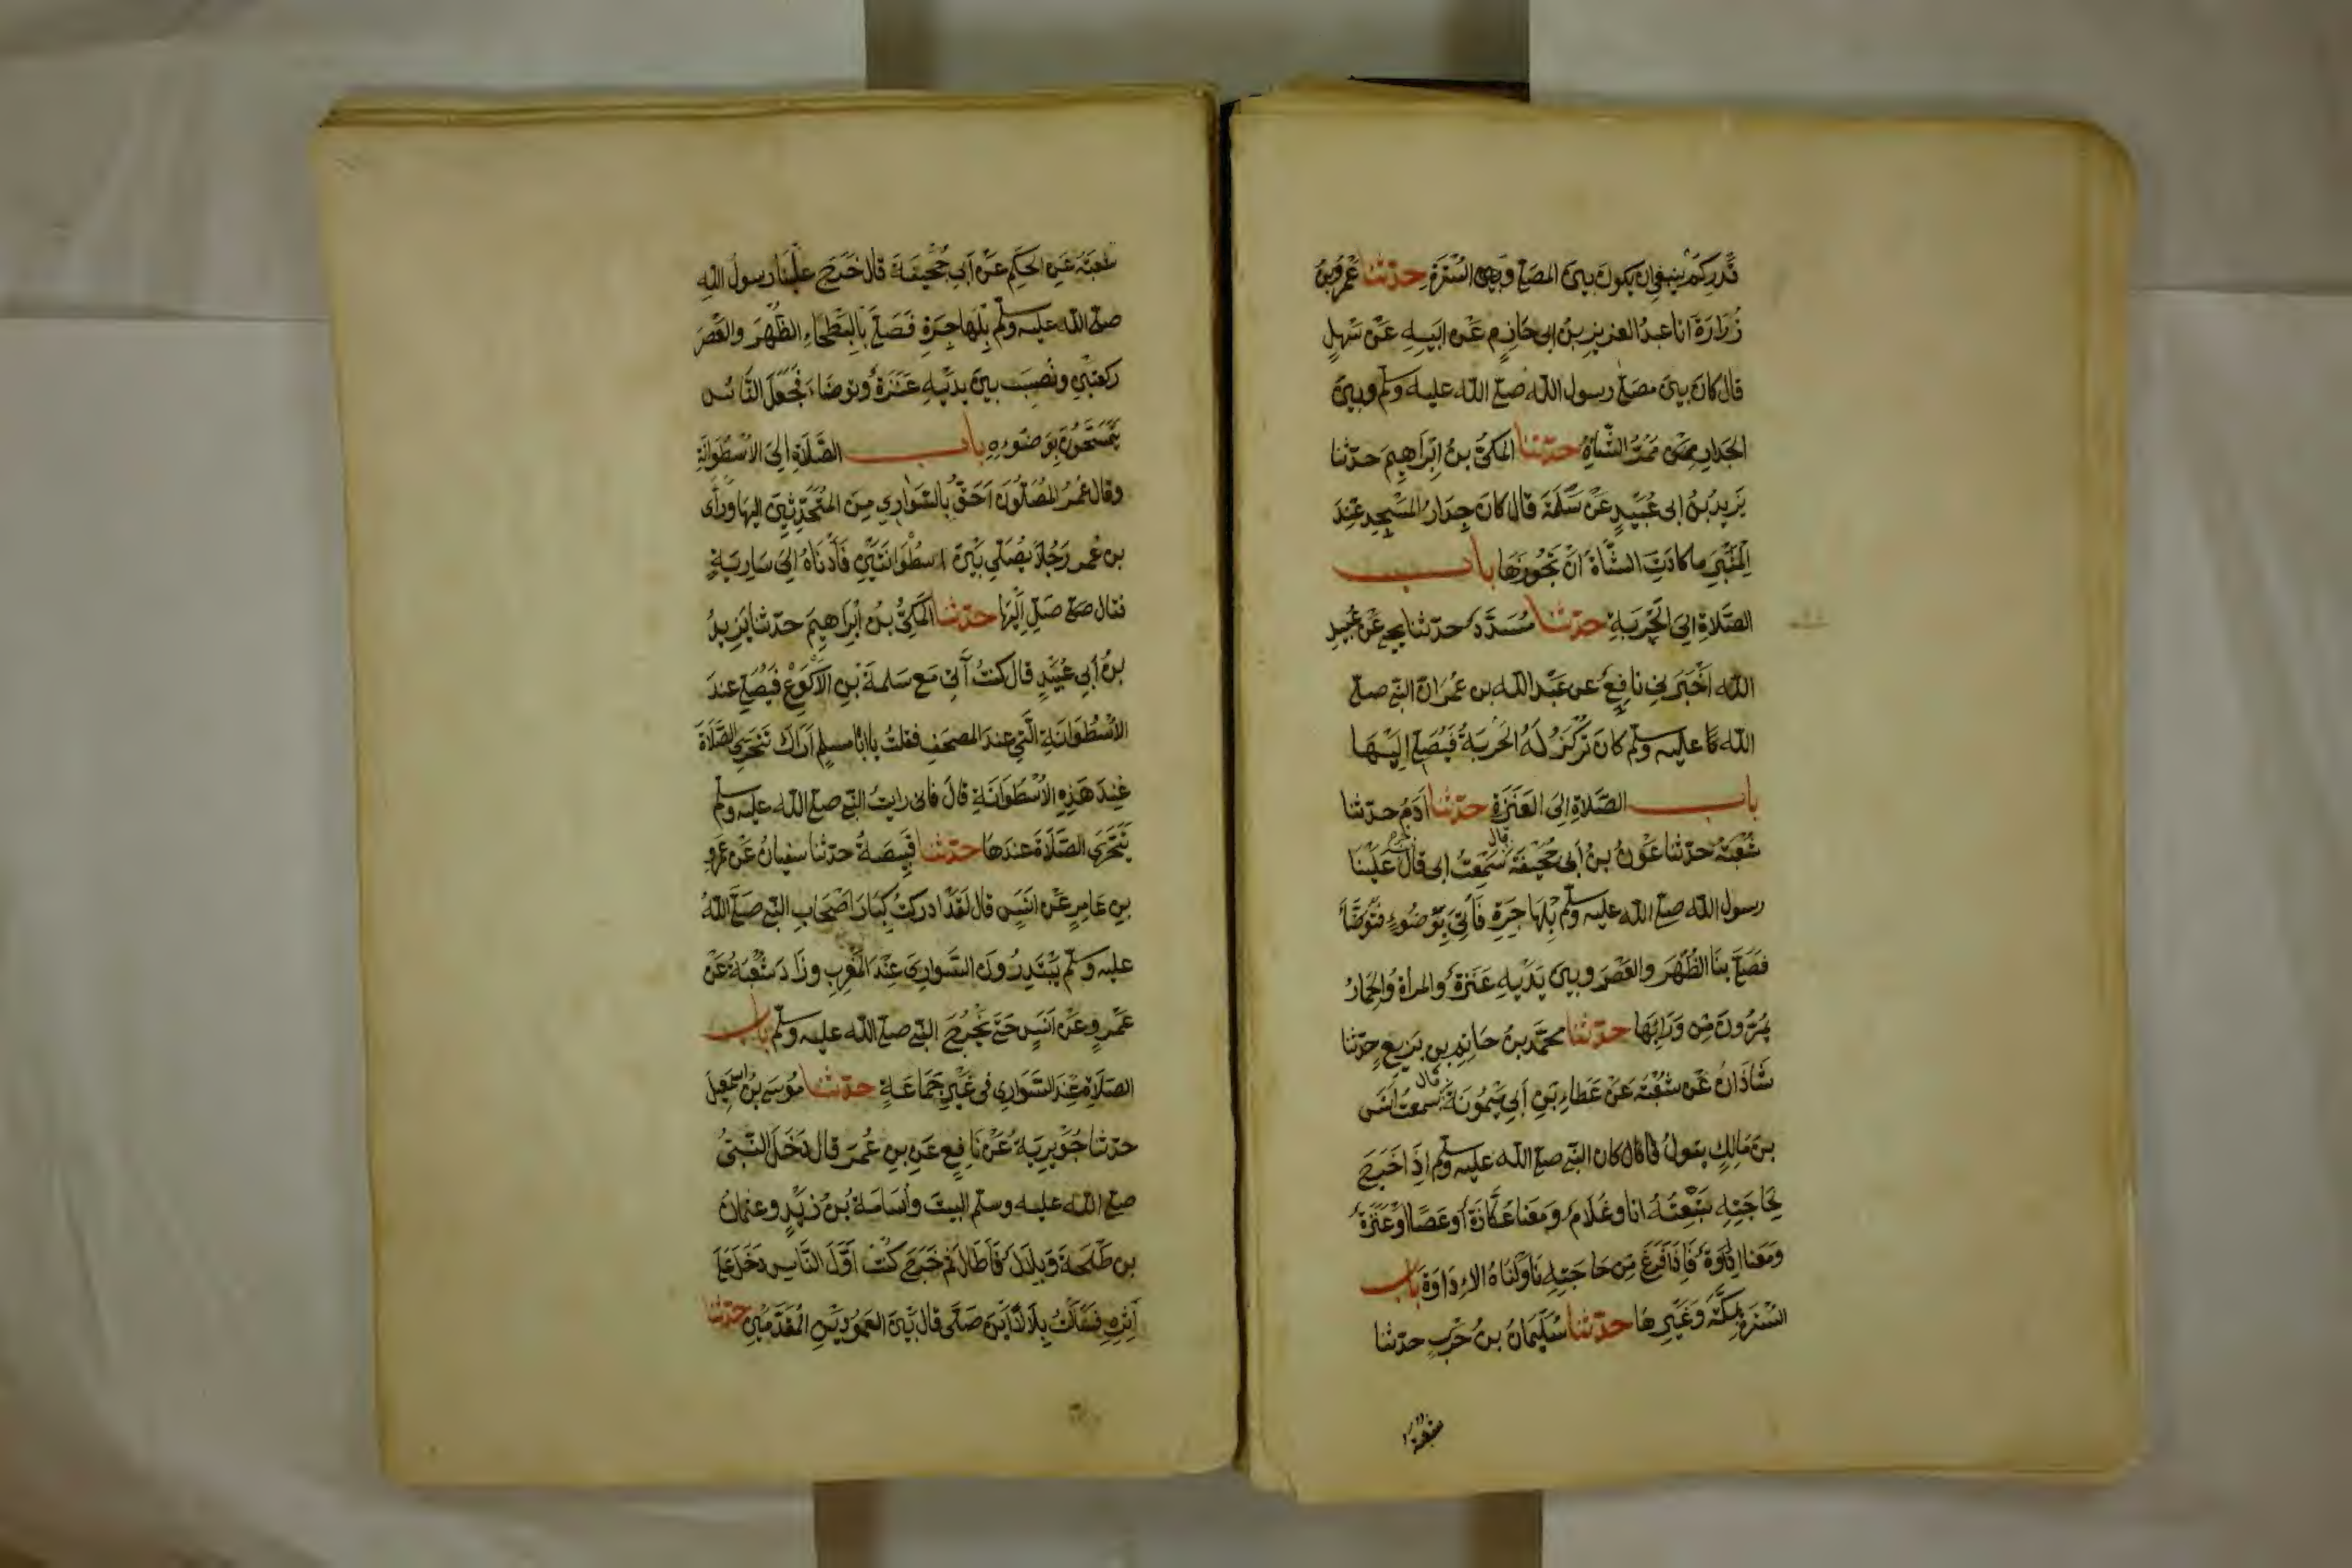 قدر كم ينبغي ان يكون بين المصلي وبين السترة حدثنا عمرو بن
زرارة انا عبد العزيز بن ابى حازم عن ابيه عن سهل
قال كان بين مصلى رسول الله صلى الله عليه وسلم وبين
الجدار ممر الشاة حدثنا المكي بن ابراهيم حدثنا
يزيد بن ابى عبيد عن سلمة قال كان جدار المسجد عند
المنبر ما كادت الشاة ان تجوزها باب
الصلاة الى الحربة حدثنا مسدد حدثنا يحيى عن عبيد
الله اخبرني نافع عن عبد الله بن عمر ان النبي صلى
الله عليه وسلم كان تركز له الحربة فيصلي اليها
باب الصلاة الى العنزة حدثنا ادم حدثنا
شعبة حدثنا عون بن أبي جحيفة قال سمعت ابى قال خرج علينا
رسول الله صلى الله عليه وسلم بالهاجرة فأتي بوضوء فتوضأ
فصلى بنا الظهر والعصر وبين يديه عنزة والمرأة والحمار
يمرون من ورائها حدثنا محمد بن حاتم بن بزيع حدثنا
شاذان عن شعبة عن عطاء بن أبي ميمونة قال سمعت انس
بن مالك يقول كان النبي صلى الله عليه وسلم اذا خرج
لحاجته تبعته انا وغلام ومعنا عكازة أو عصا او عنزة
ومعنا اداوة فاذا فرغ من حاجته ناولناه الاداوة باب
السترة بمكة وغيرها حدثنا سليمان بن حرب حدثنا
شعبة
شعبة عن الحكم عن أبي جحيفة قال خرج علينا رسول الله
صلى الله عليه وسلم بالهاجرة فصلى بالبطحاء الظهر والعصر
ركعتين ونصب بين يديه عنزة وتوضاء فجعل الناس
يتمسحون بوضوءه باب الصلاة إلى الأسطوانة
وقال عمر المصلون احق بالسواري من المتحدثين اليها ورأى
بن عمر رجلا يصلي بين اسطوانتين فأدناه الى سارية
فقال صل اليها حدثنا المكي بن ابراهيم حدثنا يزيد
بن أبي عبيد قال كنت آتي مع سلمة بن الأكوع فيصلي عند
الأسطوانة التي عند المصحف فقلت يا ابا مسلم اراك تتحرى الصلاة
عند هذه الأسطوانة قال فانى رايت النبي صلى الله عليه وسلم
يتحرى الصلاة عندها حدثنا قبيصة حدثنا سفيان عن عمرو
بن عامر عن انس قال لقد ادركت كبار اصحاب النبي صلى الله
عليه وسلم يبتدرون السواري عند المغرب وزاد شعبة عن
عمرو عن انس حتى يخرج النبي صلى الله عليه وسلم باب
الصلاة عند السواري في غير جماعة حدثنا موسى بن اسمعيل
حدثنا جويرية عن نافع عن بن عمر قال دخل النبي
صلى الله عليه وسلم البيت وأسامة بن زيد وعثمان
بن طلحة وبلال فأطال ثم خرج كنت أول الناس دخل على
أثره فسألت بلالا أين صلى قال بين العمودين المقدمين حدثنا